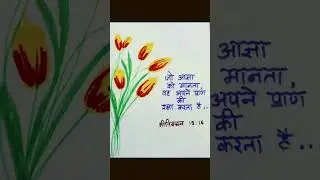 जो आज्ञा
को मानता,
वह अपने प्राण
की
रक्षा करता है..
नीतिवचन 19:16
आज्ञा
मानता,
अपने प्राण
की
करता है..